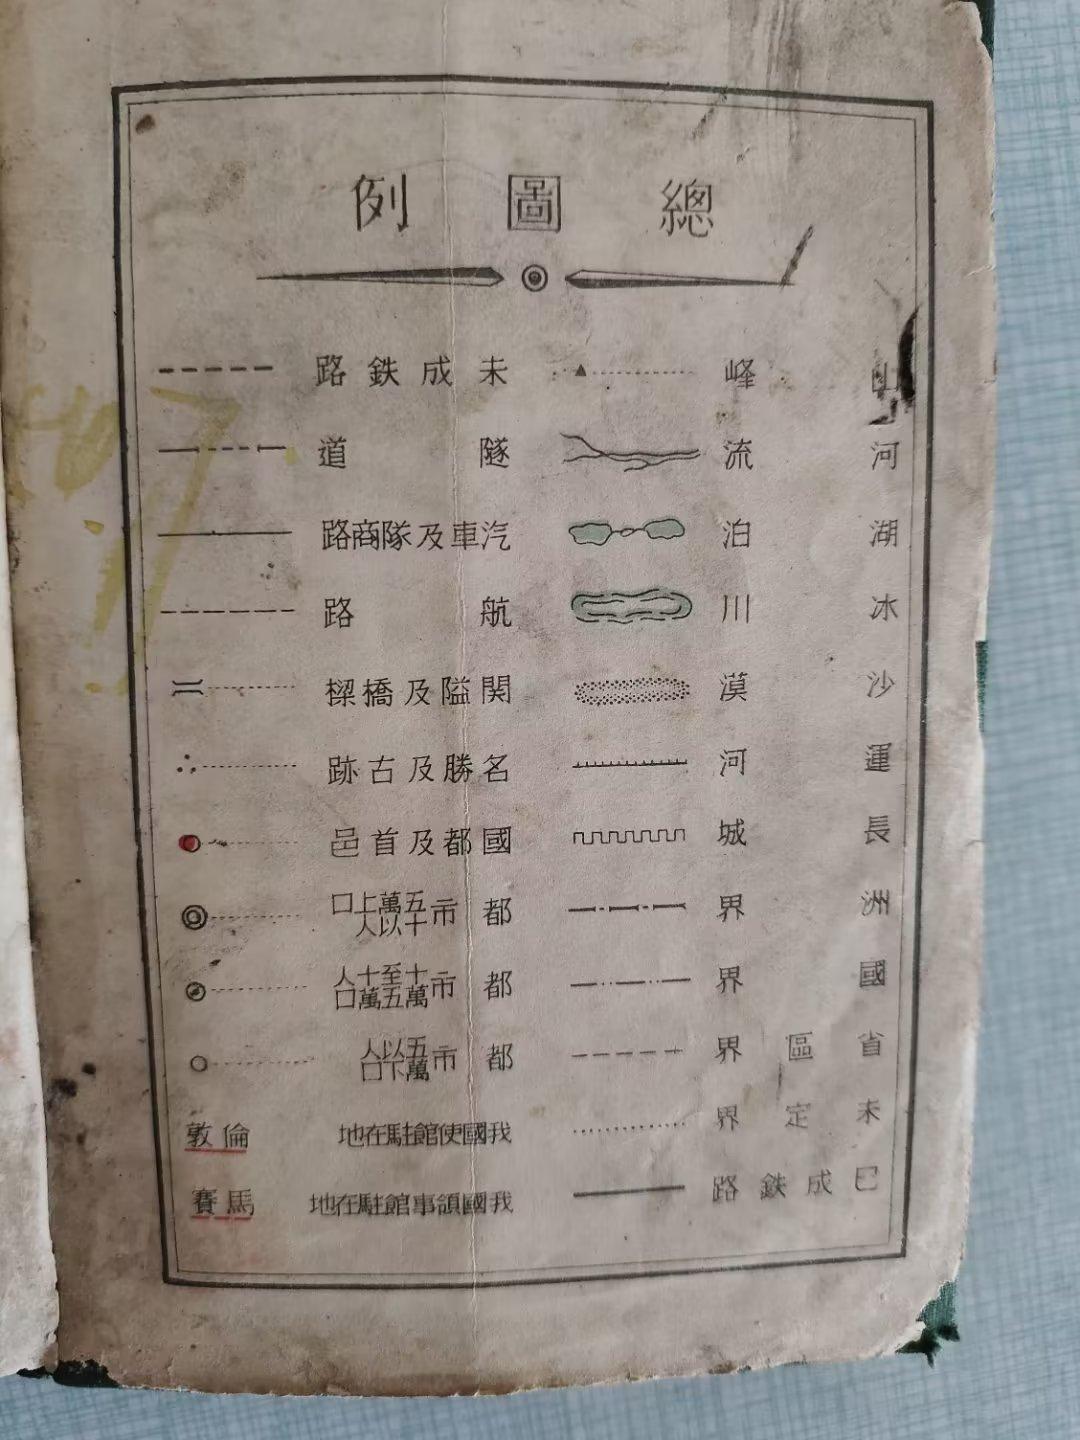 總圖例
山峰
河流
湖泊
冰川
沙漠
運河
長城
洲界
國界
省區界
未定界
已成鉄路
未成鉄路
隧道
汽車及隊商路
航路
関隘及橋樑
名勝及古跡
國都及首邑
都市五十萬以上人口
都市十萬至五十萬人口
都市五萬以下人口
我國使館駐在地 倫敦
我國領事館駐在地 馬賽